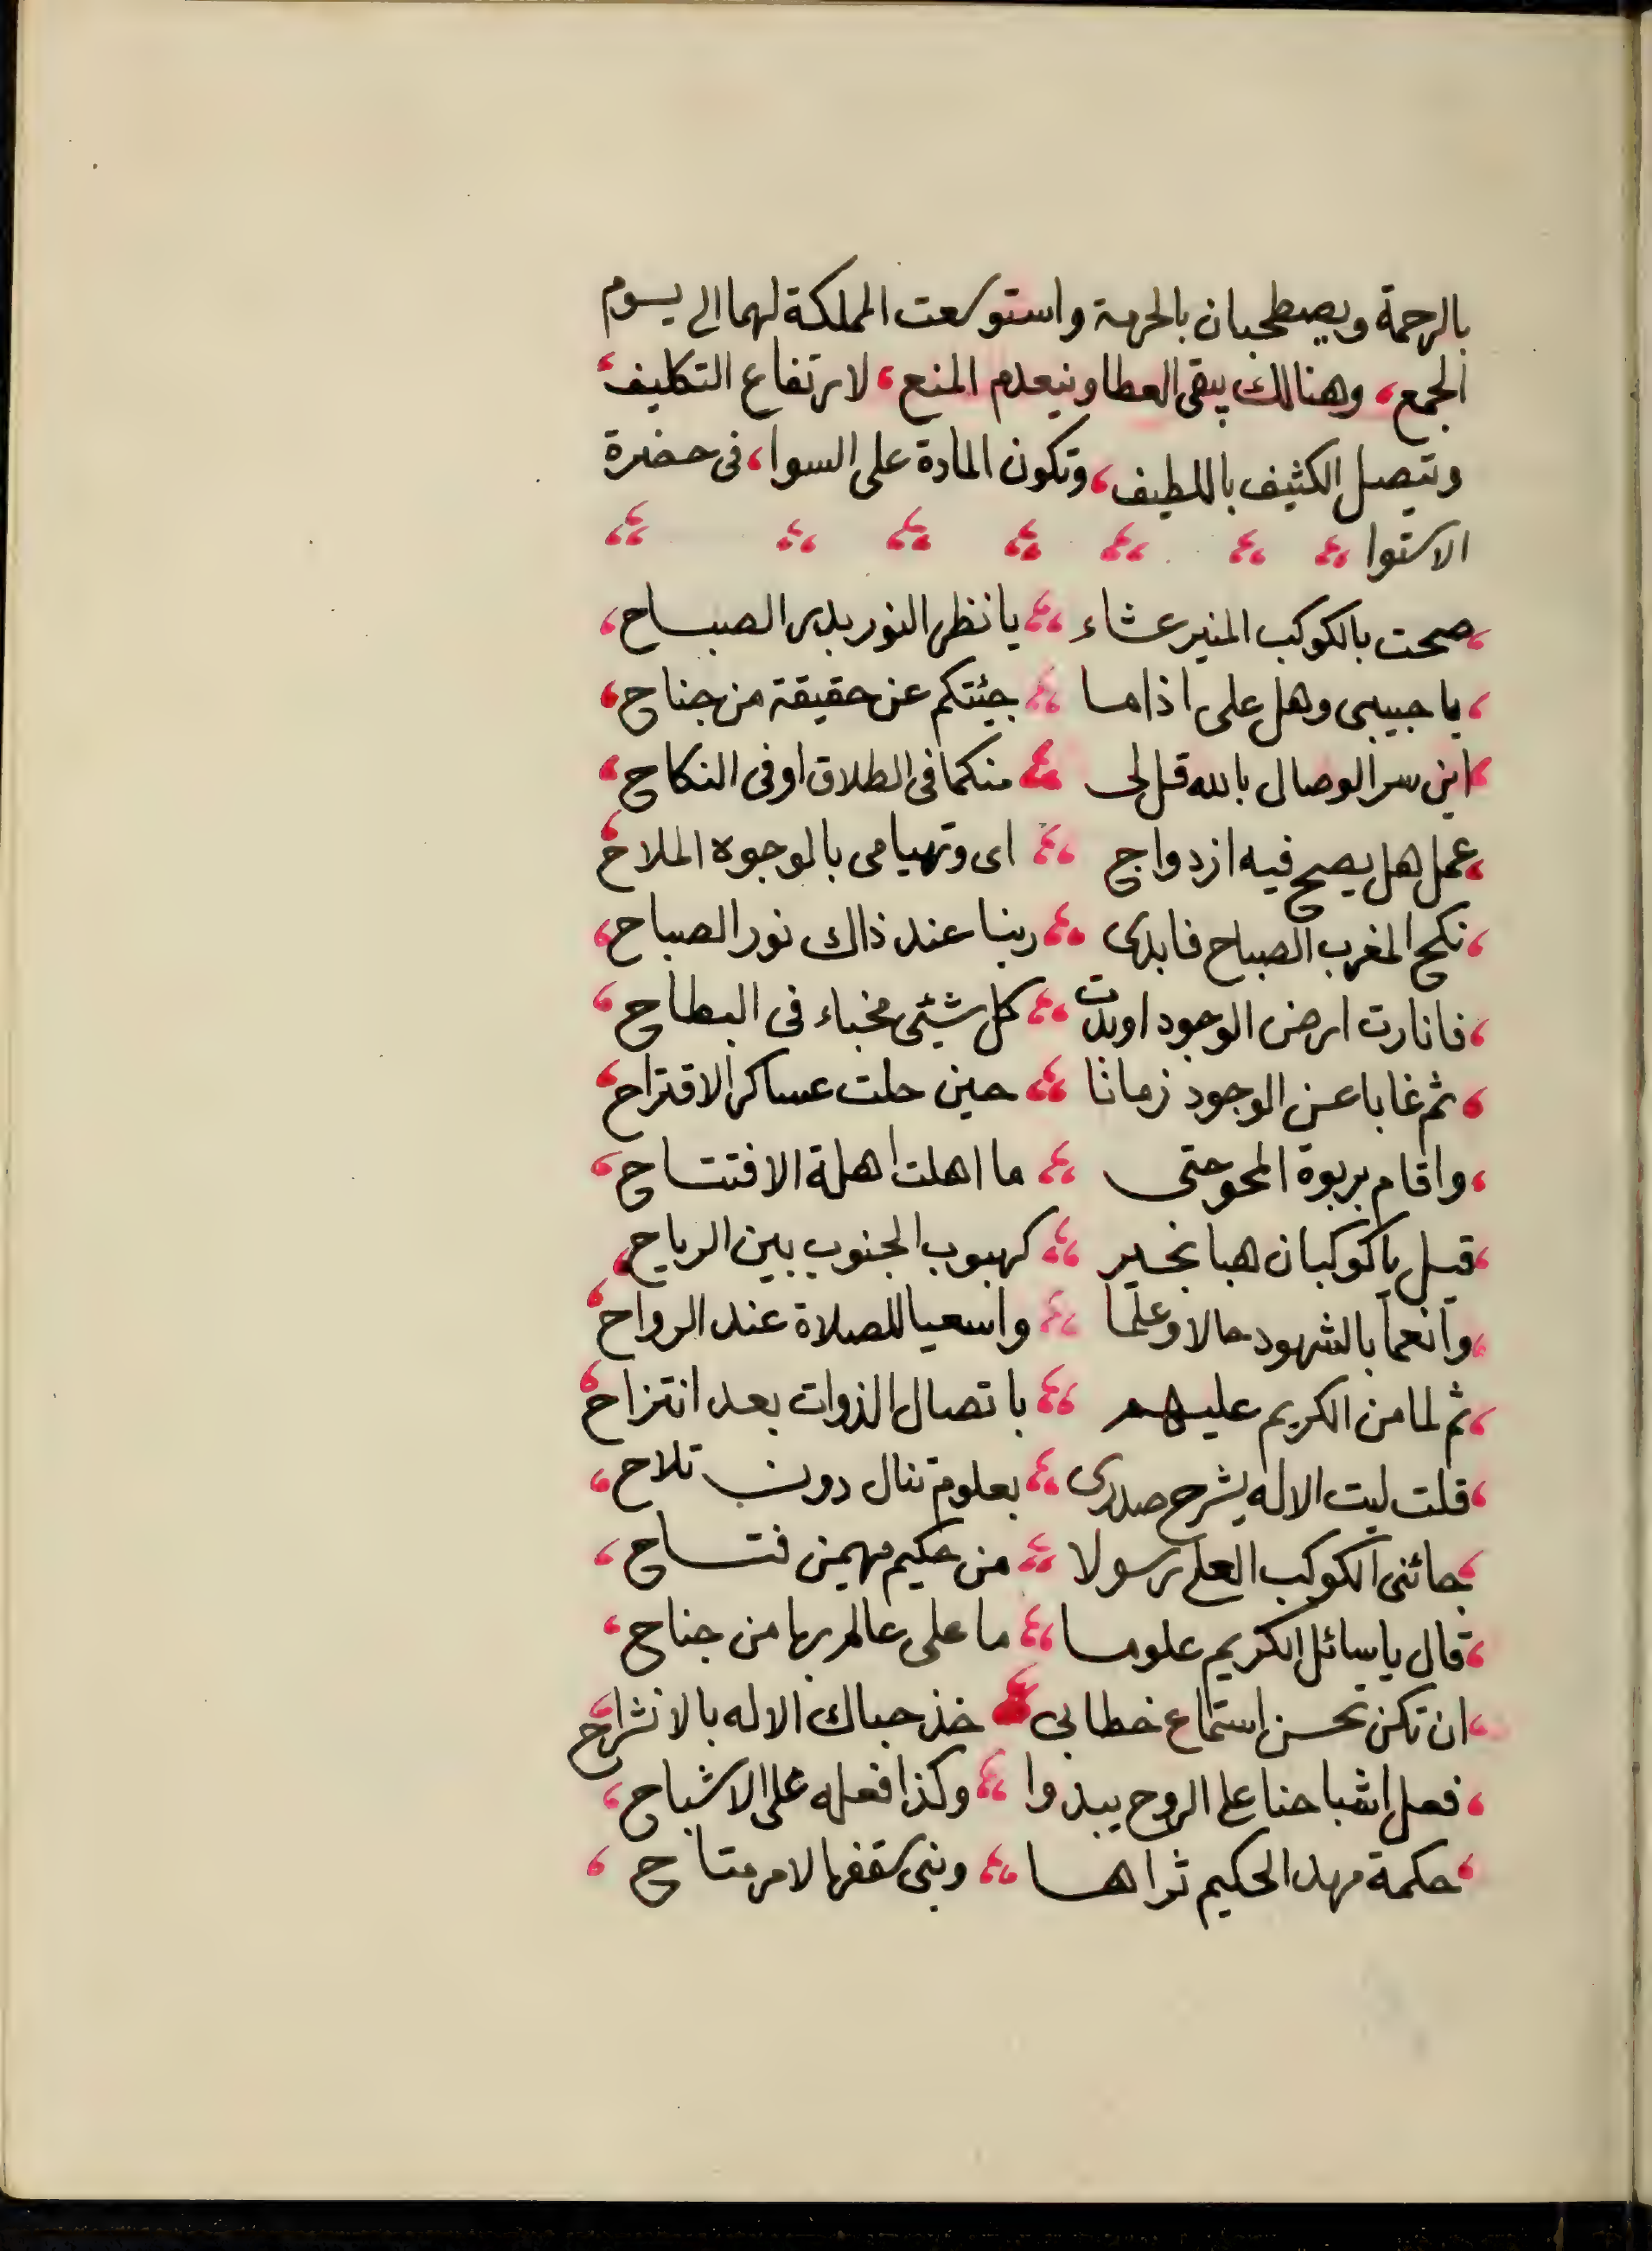 بالرحمة ويصطحبان بالحرمة واستوسعت المملكة لهما الى يسوم
الجمع، وهنالك يبقى العطا وينعدم المنع، لارتفاع التكليف،
ويتصل الكثيف باللطيف، وتكون المادة على السوا، فى حضرة
الاستوا
صحت بالكوكب المنير عشاء يا نظر النور بدر الصباح
يا حبيبى وهل على اذا ما جئتكم عن حقيقة من جناح
اين سر الوصال بالله قل لى منكما فى الطلاق او فى النكاح
عمل هل يصح فيه ازدواج اى وتهيامى بالوجوه الملاح
نكح المغرب الصباح فابدى ربنا عند ذاك نور الصباح
فانارت ارض الوجود اوبدت كل شيئى مخباء فى البطاح
ثم غابا عن الوجود زمانا حين حلت عساكر الاقتراح
واقام بربوة المحو حتى ما اهلت اهلة الافتتاح
قيل يا كوكبان هبا بخير كهبوب الجنوب بين الرياح
وانعما بالشهود حالا وعلما واسعيا للصلاة عند الرواح
ثم لما من الكريم عليهم باتصال الذوات بعد انتزاح
قلت ليت الاله يشرح صدرى بعلوم تنال دون تلاح
جائنى الكوكب العلى رسولا من حكيم مهيمن فتاح
قال يا سائل الكريم علوما ما على عالم بها من جناح
ان تكن تحسن استماع خطابى خذ حباك الاله بالانشراح
فعل اشباحنا على الروح يبدوا وكذا فعله على الاشباح
حكمة مهد الحكيم ثراها وبنى سقفها لامر متاح